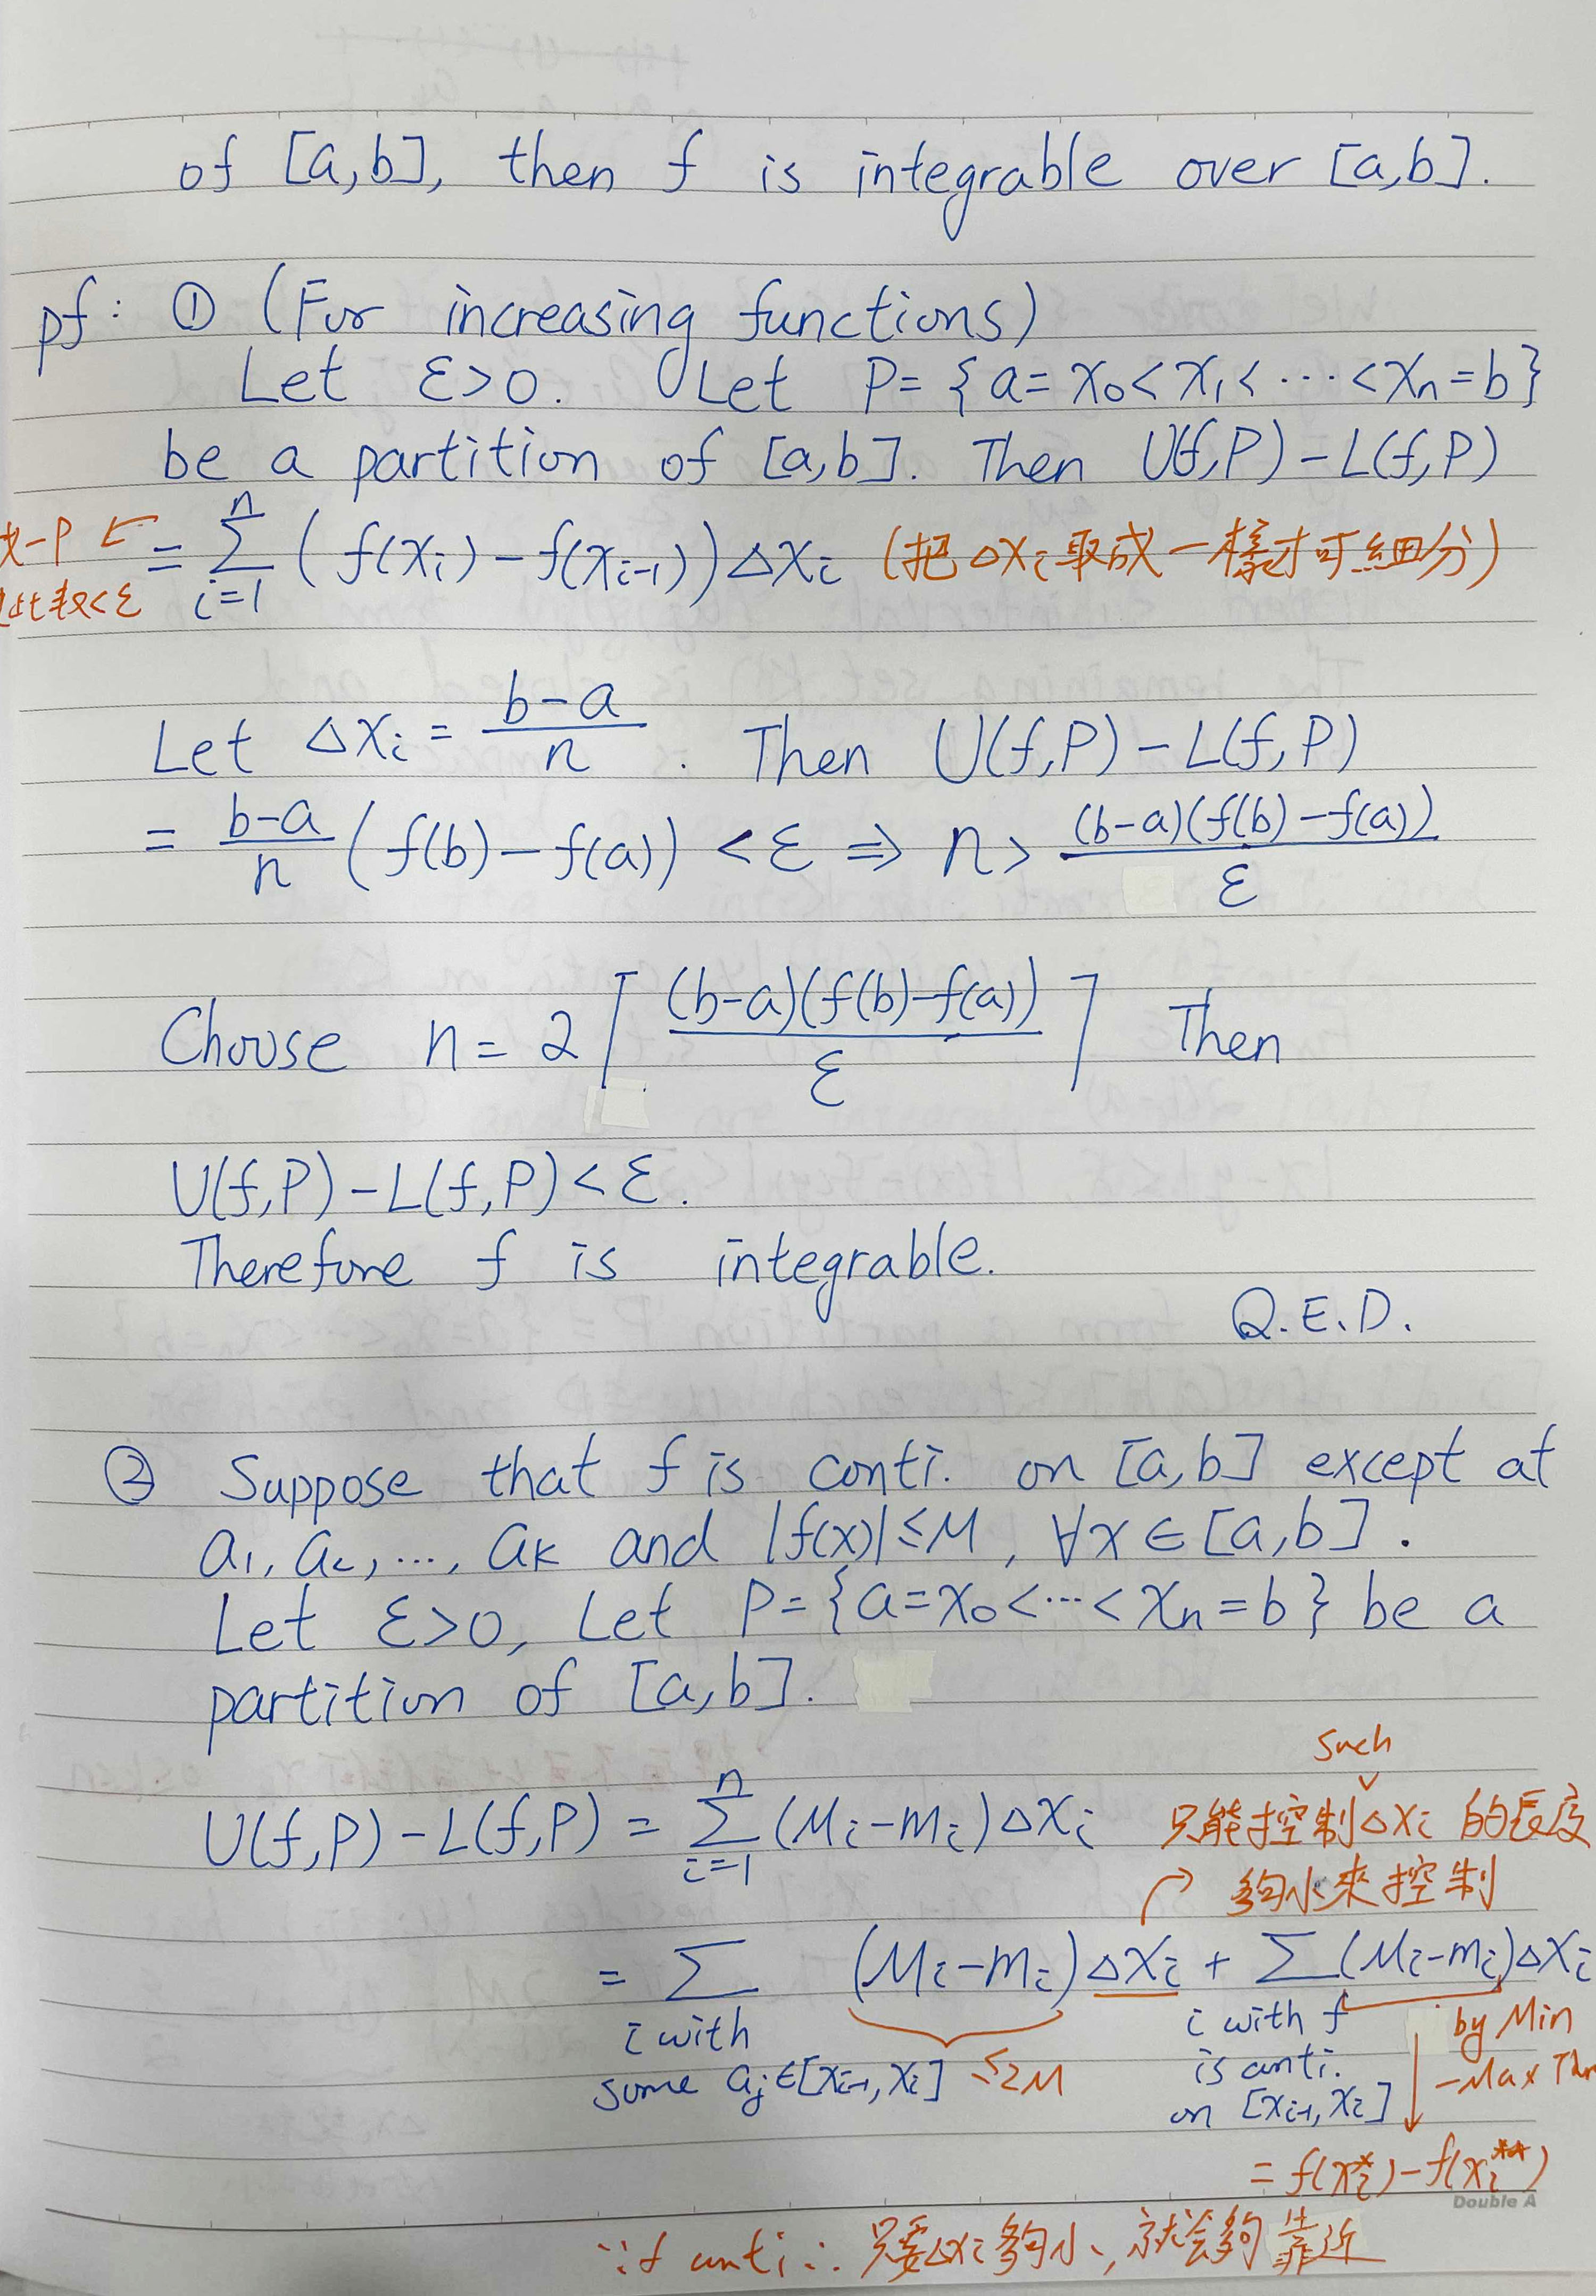 of [a,b], then f is integrable over [a,b].
pf: ① (For increasing functions)
Let ε>0. Let P={a=x₀<x₁<⋯<xₙ=b}
be a partition of [a,b]. Then U(f,P)-L(f,P)
= Σ_{i=1}^{n} (f(xᵢ)-f(xᵢ₋₁))Δxᵢ (把Δxᵢ取成一樣才可細分)
找一P ←
此數<ε
Let Δxᵢ = (b-a)/n. Then U(f,P)-L(f,P)
= (b-a)/n (f(b)-f(a)) <ε ⇒ n> (b-a)(f(b)-f(a))/ε
Choose n=2⌈(b-a)(f(b)-f(a))/ε⌉ Then
U(f,P)-L(f,P)<ε.
Therefore f is integrable.
Q.E.D.
② Suppose that f is conti. on [a,b] except at
a₁, a₂, ..., aₖ and |f(x)|≤M, ∀x∈[a,b].
Let ε>0, Let P={a=x₀<⋯<xₙ=b} be a
partition of [a,b].
such
U(f,P)-L(f,P) = Σ_{i=1}^{n} (Mᵢ-mᵢ)Δxᵢ 只能控制Δxᵢ的長度
夠小來控制
= Σ (Mᵢ-mᵢ)Δxᵢ + Σ(Mᵢ-mᵢ)Δxᵢ
i with
some aⱼ∈[xᵢ₋₁,xᵢ] ≤2M
i with f
is conti.
on [xᵢ₋₁,xᵢ]
by Min
-Max Thm
= f(xᵢ*)-f(xᵢ**)
Double A
∵f conti ∴ 只要Δxᵢ夠小,就会夠靠近